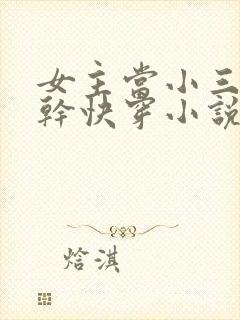 女主當小三
幹快穿小說
焓淇